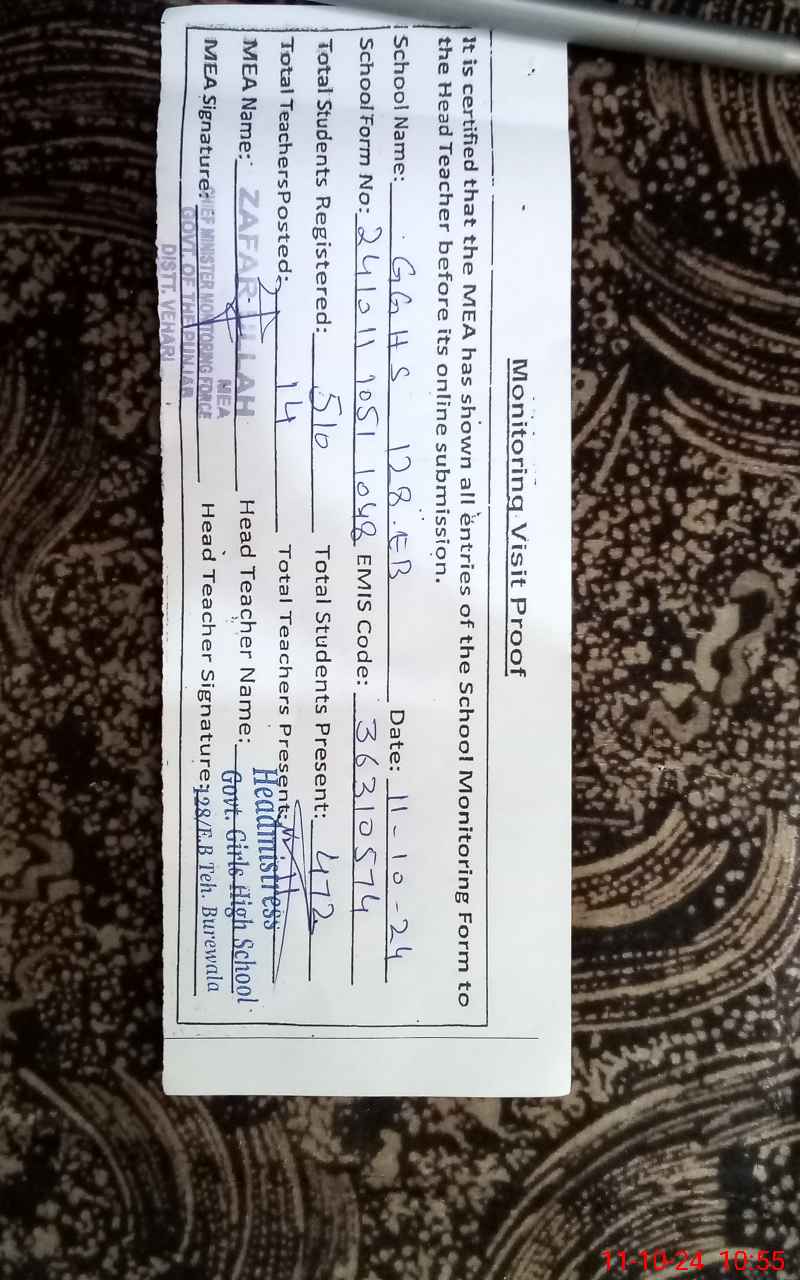 Monitoring Visit Proof
It is certified that the MEA has shown all entries of the School Monitoring Form to
the Head Teacher before its online submission.
School Name: GGHS 128.EB Date: 11-10-24
School Form No: 241011 1051 1048 EMIS Code: 36310574
Total Students Registered: 510 Total Students Present: 472
Total Teachers Posted: 14 Total Teachers Present:
MEA Name: ZAFAR ULLAH Head Teacher Name: Headmistress
MEA
MEA Signature: CHIEF MINISTER MONITORING FORCE Head Teacher Signature: Govt. Girls High School
GOVT. OF THE PUNJAB 128/E.B Teh. Burewala
DISTT. VEHARI
11-10-24 10:55